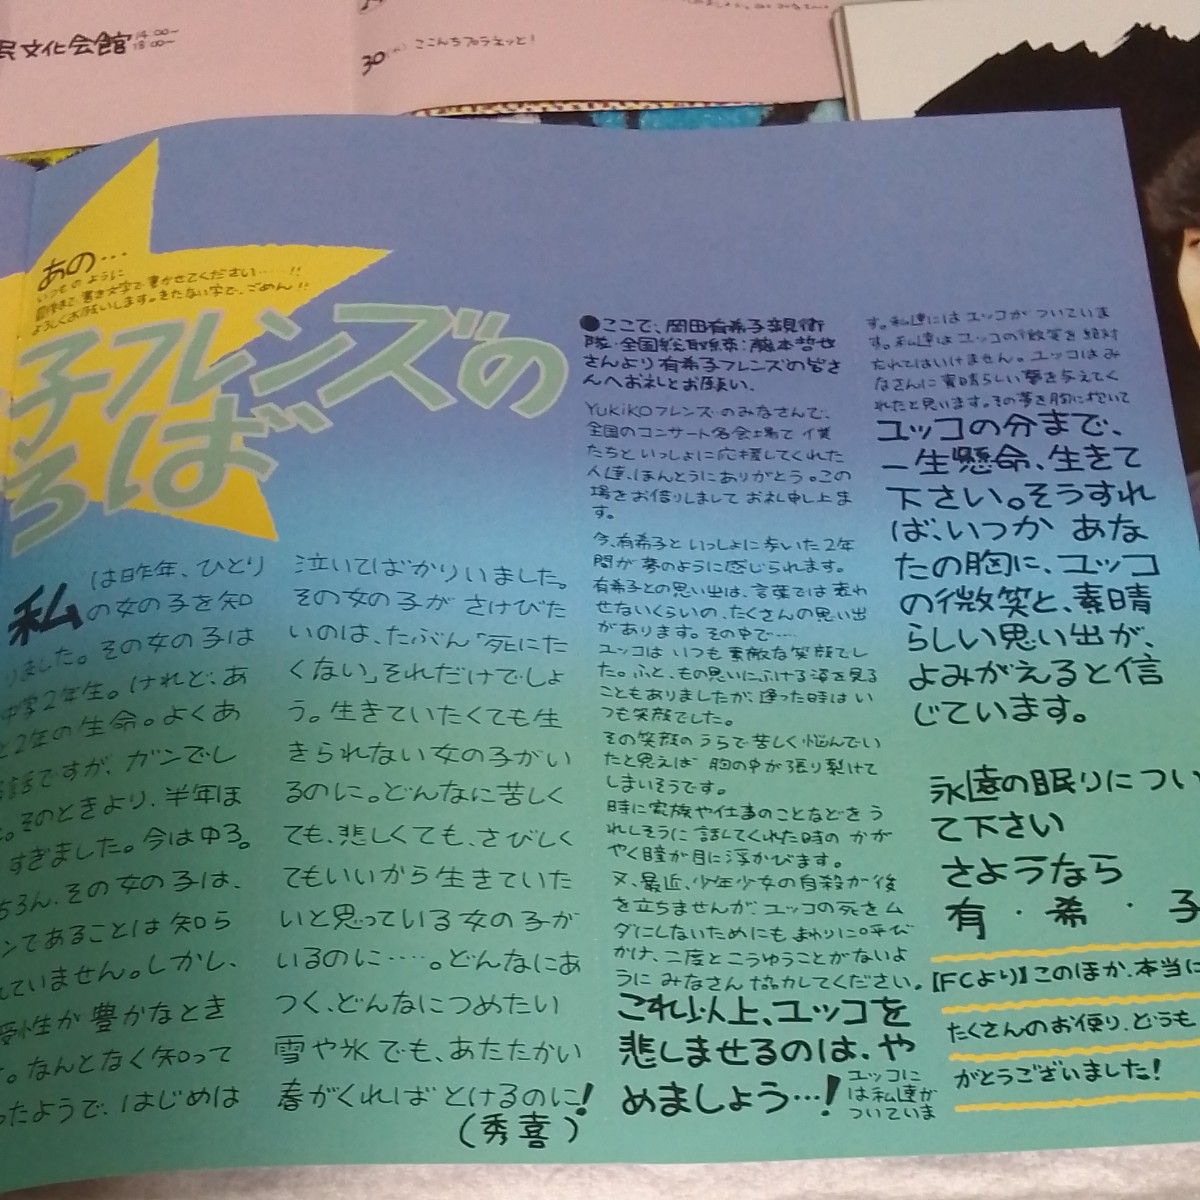 民文化会館 14:00〜
18:00〜
30 ここんちプラネッと!
あの…
いつものように
最後まで書き文字で書かせてください……!!
よろしくお願いします。きたない字で、ごめん!!
子フレンズの
ろば
私は昨年、ひとり
の女の子を知
りました。その女の子は
中学2年生。けれど、あ
と2年の生命。よくあ
話ですが、ガンでし
。そのときより、半年ほ
すぎました。今は中3。
ちろん、その女の子は、
ンであることは知ら
れていません。しかし、
受性が豊かなとき
。なんとなく知って
ったようで、はじめは
泣いてばかりいました。
その女の子がさけびた
いのは、たぶん「死にた
くない」それだけでしょ
う。生きていたくても生
きられない女の子がい
るのに。どんなに苦しく
ても、悲しくても、さびしく
てもいいから生きていた
いと思っている女の子が
いるのに……。どんなにあ
つく、どんなにつめたい
雪や氷でも、あたたかい
春がくればとけるのに!
(秀喜)
●ここで、岡田有希子親衛
隊・全国総取締:藤本哲也
さんより有希子フレンズの皆さ
んへお礼とお願い。
YUKIKOフレンズのみなさんで、
全国のコンサート各会場で僕
たちといっしょに応援してくれた
人達、ほんとうにありがとう。この
場をお借りしましてお礼申し上ま
す。
今、有希子といっしょに歩いた2年
間が夢のように感じられます。
有希子との思い出は、言葉では表わ
せないくらいの、たくさんの思い出
があります。その中で…
ユッコはいつも素敵な笑顔でし
た。ふと、もの思いにふける姿を見る
こともありましたが、逢った時はい
つも笑顔でした。
その笑顔のうらで苦しく悩んでい
たと思えば胸の中が張り裂けて
しまいそうです。
時に家族や仕事のことなどをう
れしそうに話してくれた時のかが
やく瞳が目に浮かびます。
又、最近、少年少女の自殺が後
を立ちませんが、ユッコの死をム
ダにしないためにもまわりに呼び
かけ、二度とこうゆうことがないよ
うにみなさん協力してください。
これ以上、ユッコを
悲しませるのは、や
めましょう…!
ユッコに
は私達が
ついていま
す。私達にはユッコがついていま
す。私達はユッコの微笑を絶対
忘れてはいけません。ユッコはみ
なさんに素晴らしい夢を与えてく
れたと思います。その夢を胸に抱いて
ユッコの分まで、
一生懸命、生きて
下さい。そうすれ
ば、いつかあな
たの胸に、ユッコ
の微笑と、素晴
らしい思い出が、
よみがえると信
じています。
永遠の眠りについ
て下さい
さようなら
有・希・子
【FCより】このほか、本当に
たくさんのお便り、どうも
がとうございました!